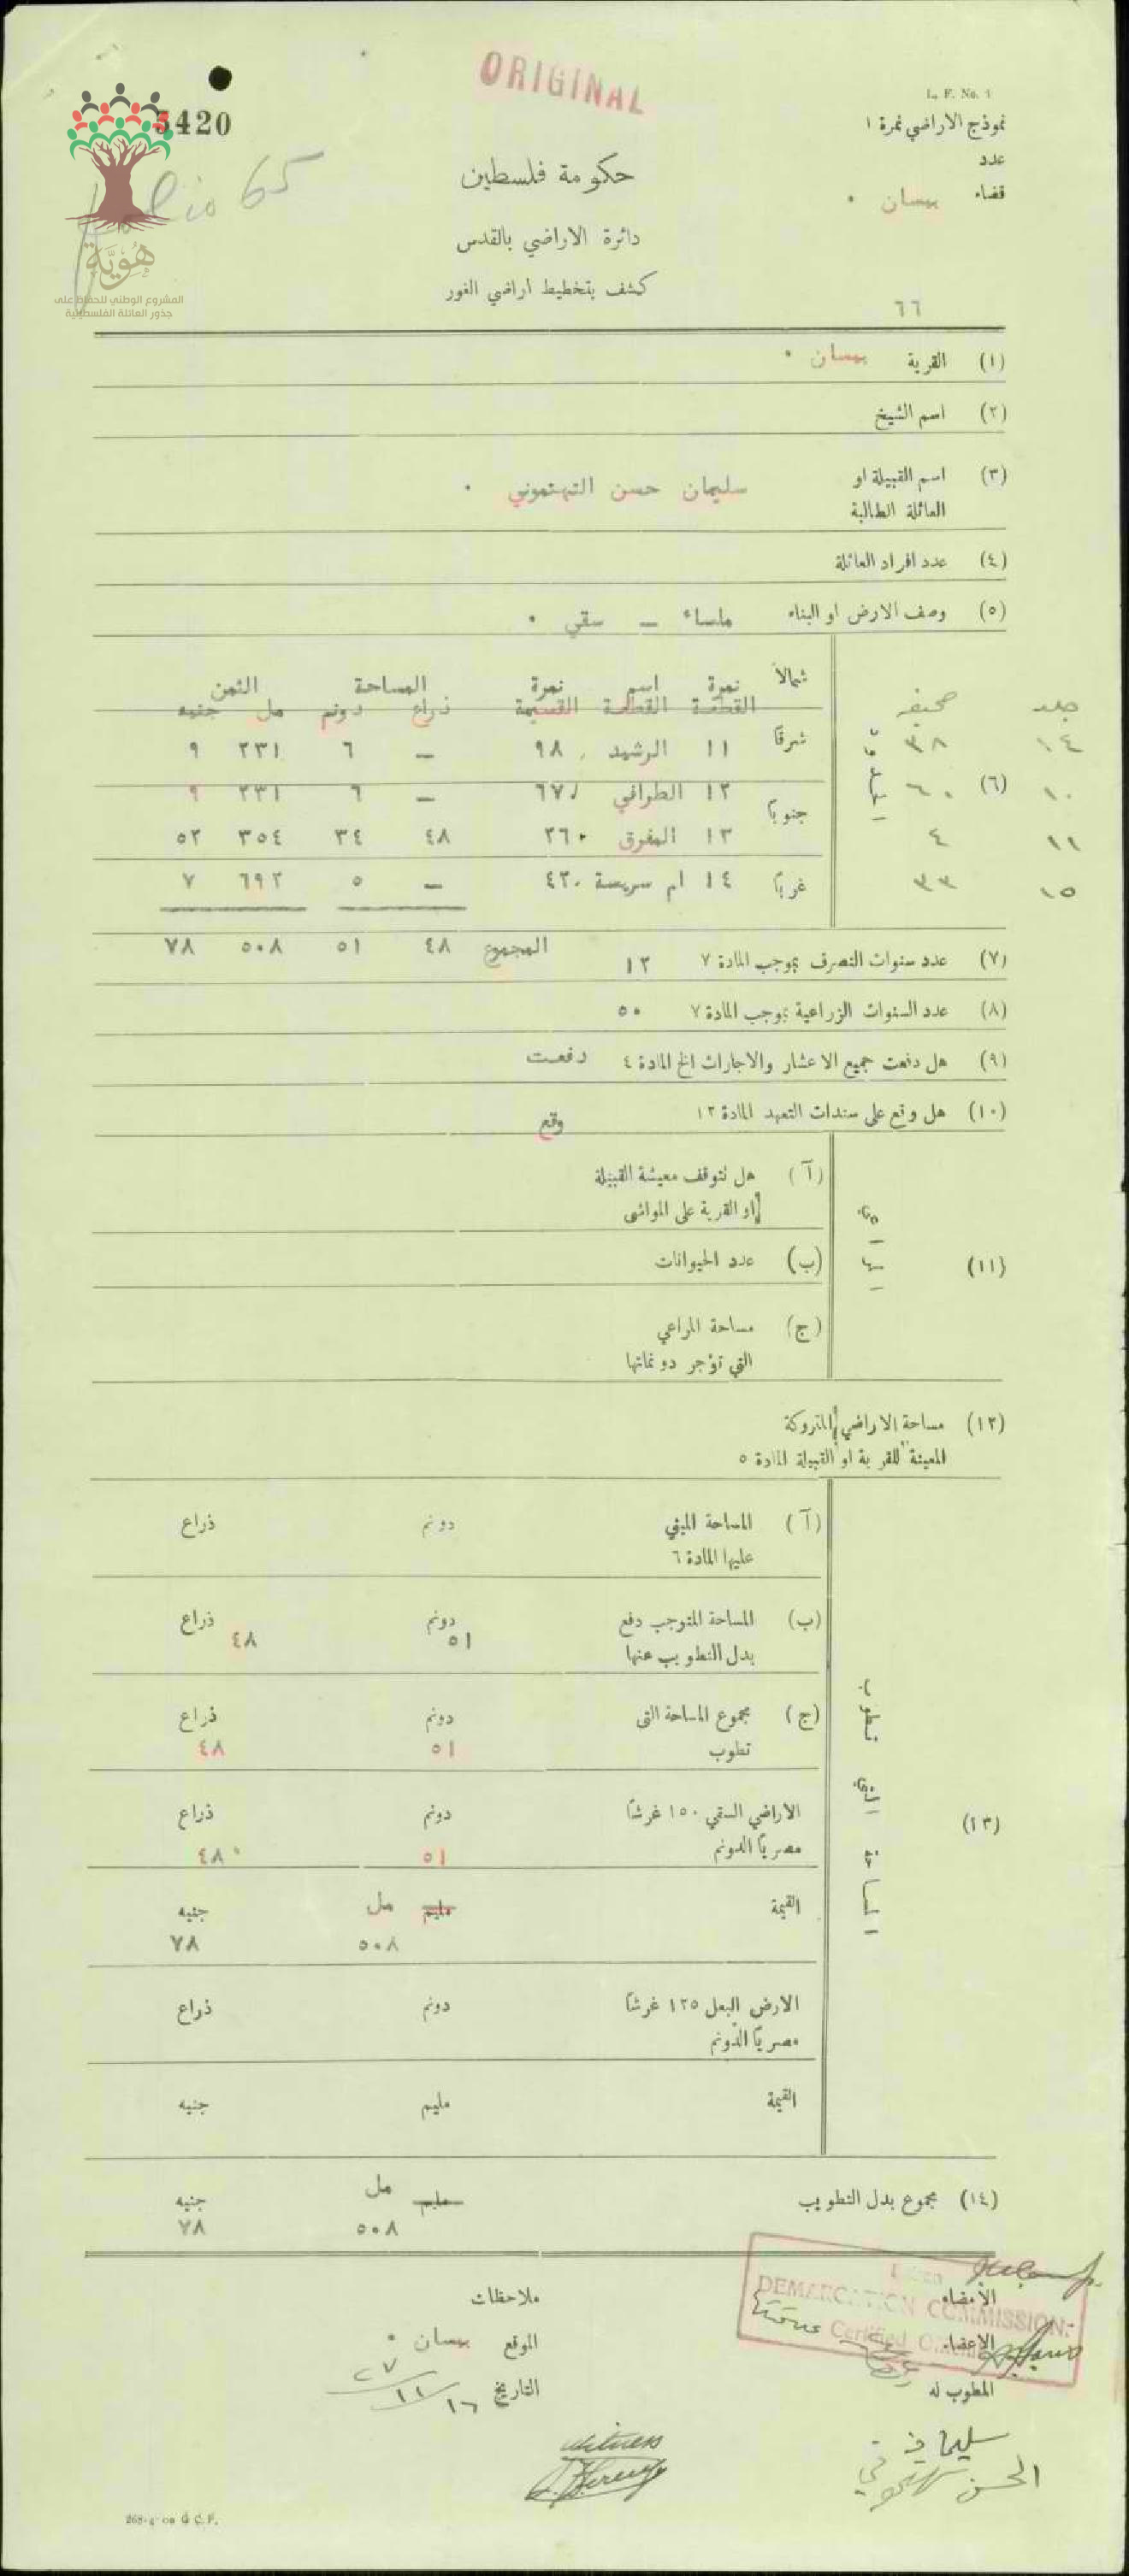 ORIGINAL
L. F. No. 1
5420
نموذج الاراضي نمرة ١
عدد
قضاء بيسان .
Folio 65
حكومة فلسطين
دائرة الاراضي بالقدس
كشف بتخطيط اراضي الغور
٦٦
هُوِيَّة
المشروع الوطني للحفاظ على
جذور العائلة الفلسطينية
(١) القرية بيسان .
(٢) اسم الشيخ
(٣) اسم القبيلة او سليمان حسن التهتموني .
العائلة الطالبة
(٤) عدد افراد العائلة
(٥) وصف الارض او البناء ملساء – سقي .
جلد صحيفة شمالاً نمرة القطعة اسم القطعة نمرة القسيمة المساحة ذراع دونم الثمن مل جنيه
١٤ ٣٨ شرقاً ١١ الرشيد ٩٨ – ٦ ٢٣١ ٩
١٠ (٦) ٦٠ ١٢ الطرافي ٦٧ – ٦ ٢٣١ ٩
١١ ٤ جنوباً ١٣ المفرق ٢٦٠ ٤٨ ٣٤ ٣٥٤ ٥٢
١٥ ٣٣ غرباً ١٤ ام سريسة ٤٢٠ – ٥ ٦٩٢ ٧
المجموع ٤٨ ٥١ ٥٠٨ ٧٨
(٧) عدد سنوات التصرف بموجب المادة ٧ ١٢
(٨) عدد السنوات الزراعية بموجب المادة ٧ ٥٠
(٩) هل دفعت جميع الاعشار والاجارات الخ المادة ٤ دفعت
(١٠) هل وقع على سندات التعهد المادة ١٢ وقع
(١١) (آ) هل تتوقف معيشة القبيلة
او القرية على المواشي
(ب) عدد الحيوانات
(ج) مساحة المراعي
التي تؤجر دونماتها
(١٢) مساحة الاراضي المتروكة
المعينة للقرية او القبيلة المادة ٥
(١٣) المساحة التي تطوب
(آ) المساحة المبني دونم ذراع
عليها المادة ٦
(ب) المساحة المتوجب دفع دونم ذراع
بدل التطويب عنها ٥١ ٤٨
(ج) مجموع المساحة التي دونم ذراع
تطوب ٥١ ٤٨
الاراضي السقي ١٥٠ غرشاً دونم ذراع
مصرياً الدونم ٥١ ٤٨
القيمة مليم مل جنيه
٥٠٨ ٧٨
الارض البعل ١٢٥ غرشاً دونم ذراع
مصرياً الدونم
القيمة مليم جنيه
(١٤) مجموع بدل التطويب مليم مل جنيه
٥٠٨ ٧٨
DEMARCATION COMMISSION
Certified
الأمضاء
الاعضاء
المطوب له
ملاحظات
الموقع بيسان .
التاريخ ١٦/١١/٢٧
سليمان
الحسن
witness
268-4 on G C.P.